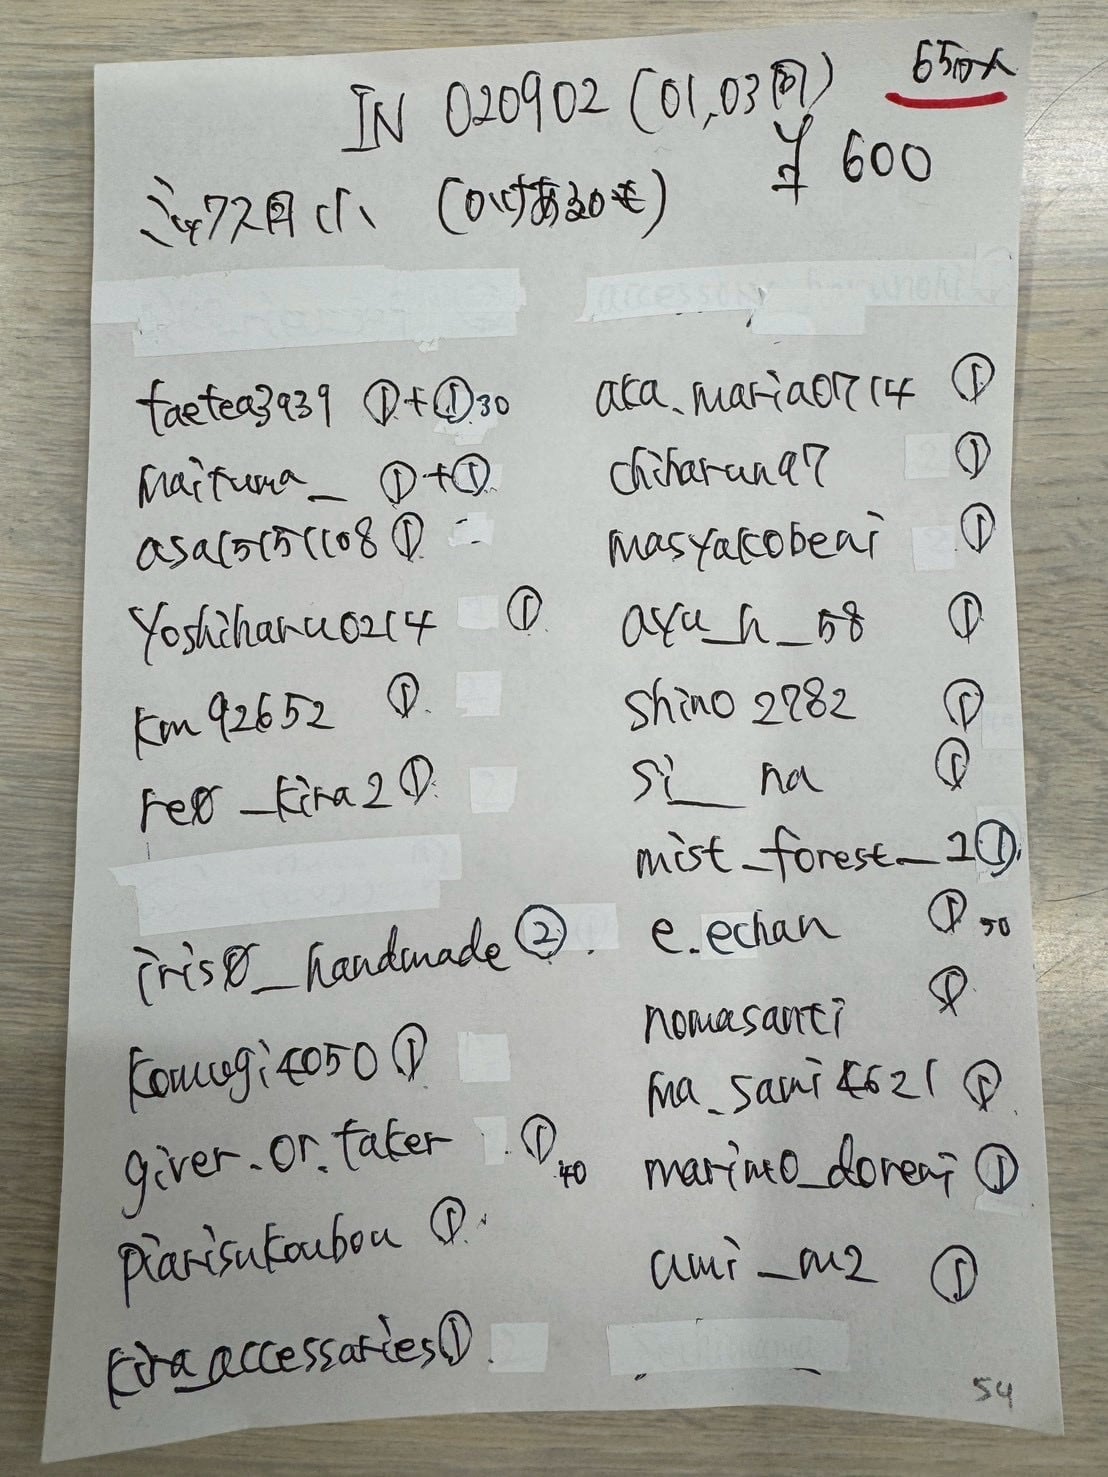 IN 020902 (01,03同)
650人
¥600
ミックス目 小 (01けあ30モ)
taetea3939 ①+①30
maituma_ ①+①
asa15151108 ①
yoshiharu0214 ①
km92652 ①
re0_kira2 ①
iris0_handmade ②
komugi4050 ①
giver.or.taker ①40
piarisukoubou ①
kira_accessaries ①
aka.maria0714 ①
chiharun97 ①
masyakobeni ①
ayu_h_58 ①
shino2782 ①
si__na ①
mist_forest_2 ①
e.echan ①50
nomasanti ①
ma_sami4621 ①
marimo_doreni ①
ami_m2 ①
54